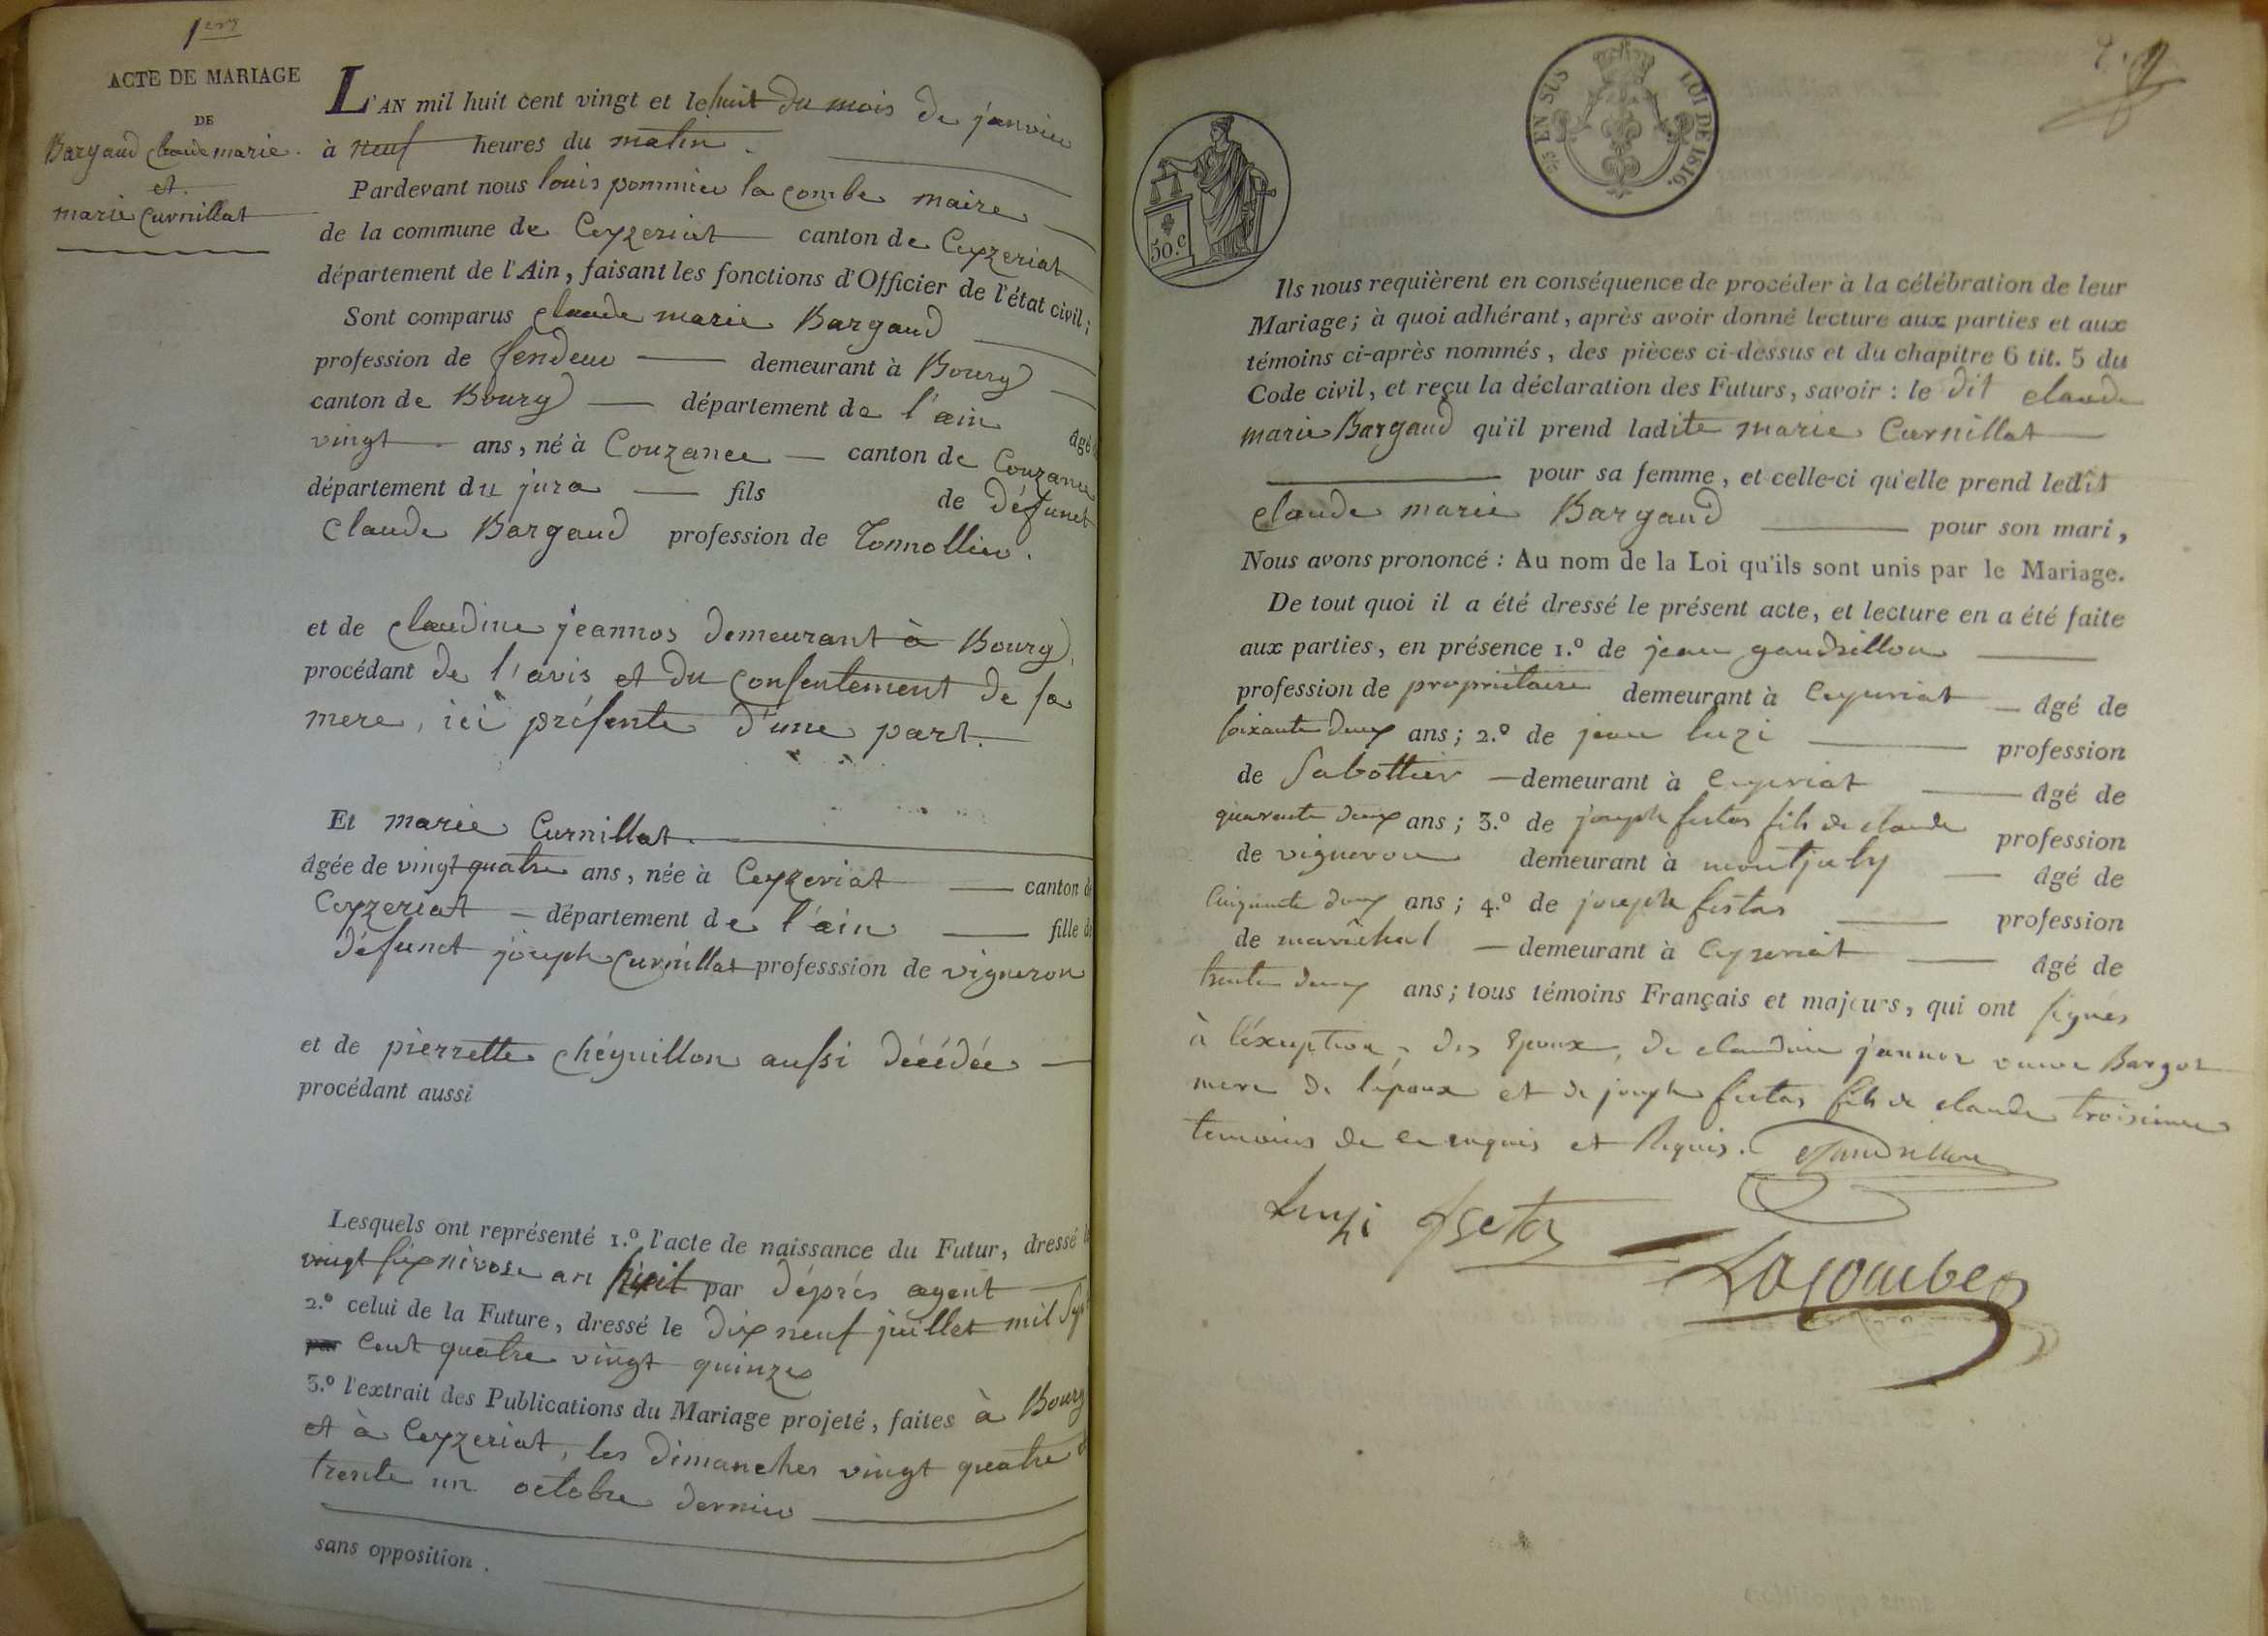 1er
ACTE DE MARIAGE
DE
Bargaud claude marie
et
marie Curnillat
L'AN mil huit cent vingt et le huit du mois de janvier
à neuf heures du matin.
Pardevant nous louis pommier la combe maire
de la commune de Ceyzeriat canton de Ceyzeriat
département de l'Ain, faisant les fonctions d'Officier de l'état civil;
Sont comparus claude marie Bargaud
profession de fendeur demeurant à Bourg
canton de Bourg département de l'ain âgé d
vingt ans, né à Couzance canton de Couzance
département du jura fils de défunct
Claude Bargaud profession de Tonnollier.
et de claudine jeannos demeurant à Bourg,
procédant de l'avis et du consentement de sa
mere, ici présente d'une part.
Et marie Curnillat
âgée de vingt quatre ans, née à Ceyzeriat canton de
Ceyzeriat département de l'ain fille de
défunct joseph Curnillat professsion de vigneron
et de pierrette chéguillon aussi décédée
procédant aussi
Lesquels ont représenté 1.º l'acte de naissance du Futur, dressé le
vingt six nivose an huit par déprés agent
2.º celui de la Future, dressé le dix neuf juillet mil sept
par cent quatre vingt quinze
3.º l'extrait des Publications du Mariage projeté, faites à Bourg
et à Ceyzeriat, les dimanches vingt quatre et
trente un octobre dernier
sans opposition.
EN SUS
LOI DE 1816.
50.c
Ils nous requièrent en conséquence de procéder à la célébration de leur
Mariage; à quoi adhérant, après avoir donné lecture aux parties et aux
témoins ci-après nommés, des pièces ci-dessus et du chapitre 6 tit. 5 du
Code civil, et reçu la déclaration des Futurs, savoir: le dit claude
marie Bargaud qu'il prend ladite marie Curnillat
pour sa femme, et celle-ci qu'elle prend ledit
claude marie Bargaud pour son mari,
Nous avons prononcé: Au nom de la Loi qu'ils sont unis par le Mariage.
De tout quoi il a été dressé le présent acte, et lecture en a été faite
aux parties, en présence 1.º de jean gandrillon
profession de propriétaire demeurant à Ceyzeriat âgé de
soixante deux ans; 2.º de jean luzi profession
de Sabottier demeurant à Ceyzeriat âgé de
quarente deux ans; 3.º de joseph festas fils de claude profession
de vigneron demeurant à montjuly âgé de
cinquante deux ans; 4.º de joseph festas profession
de maréchal demeurant à Ceyzeriat âgé de
trente deux ans; tous témoins Français et majeurs, qui ont signés
à l'exception, des Epoux, de claudine jannos veuve Bargot
mere de l'epoux et de joseph festas fils de claude troisieme
temoins de ce enquis et Requis. Gandrillon
Luzi festas
Lacombe